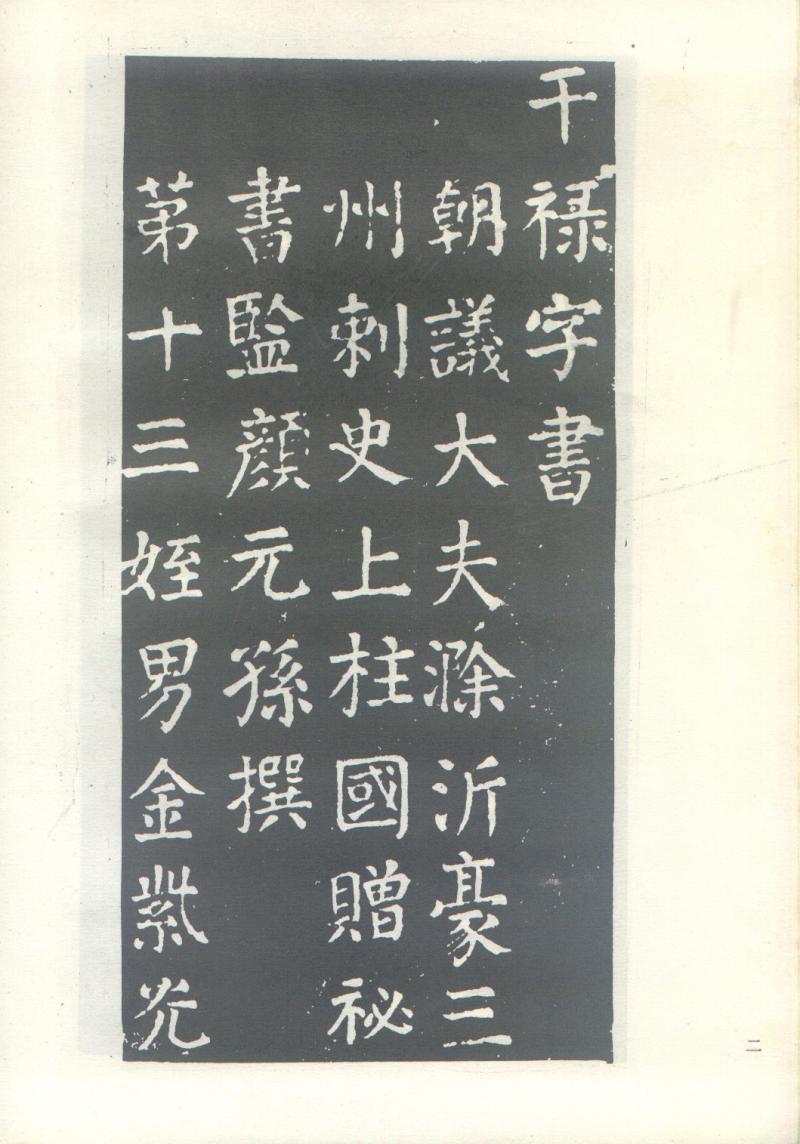 干禄字書
朝議大夫滁沂豪三
州刺史上柱國贈祕
書監顔元孫撰
第十三姪男金紫光
二